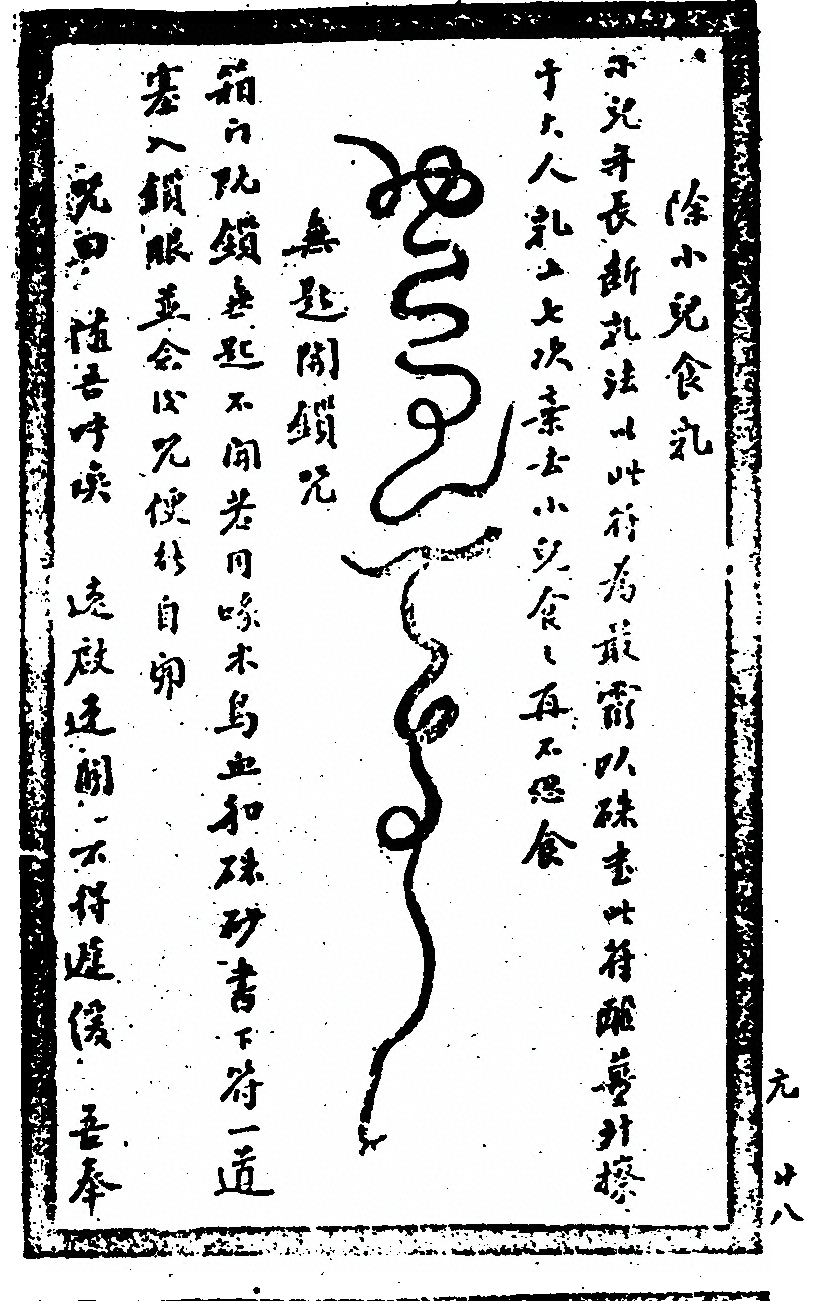 除小兒食乳
小兒年長斷乳法以此符為最靈以硃書此符醮薑汁擦
于大人乳上七次棄去小兒食之再不思食
無匙開鎖咒
箱門阬鎖無匙不開若用啄木鳥血和硃砂書下符一道
塞入鎖眼並念後咒便能自卸
咒曰 隨吾呼喚 遠啟近開 不得遲緩 吾奉
元 廿八